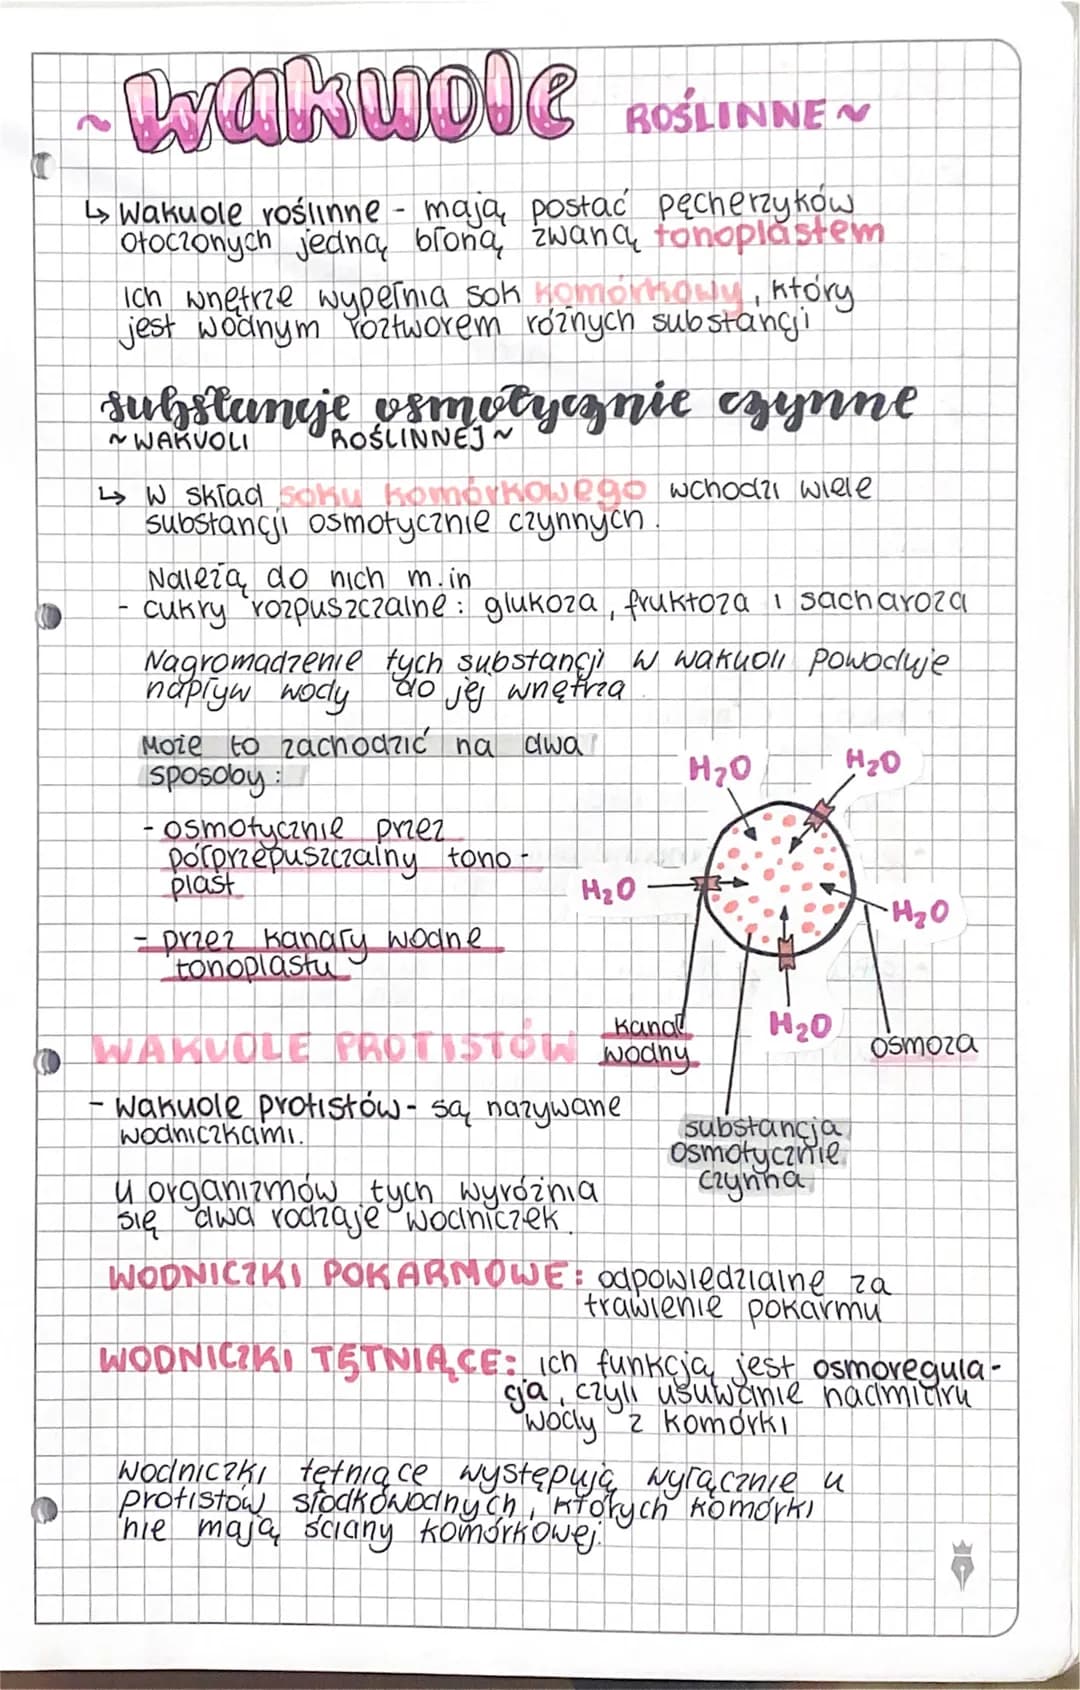 ~ wakuole ROŚLINNE ~
↳ Wakuole roślinne - mają postać pęcherzyków
otoczonych jedną błoną zwaną tonoplastem
Ich wnętrze wypełnia sok komórkowy, który
jest wodnym roztworem różnych substancji
substancje osmotycznie czynne
~ WAKUOLI ROŚLINNEJ ~
↳ W skład soku komórkowego wchodzi wiele
substancji osmotycznie czynnych.
Należą do nich m.in
- cukry rozpuszczalne: glukoza, fruktoza i sacharoza
Nagromadzenie tych substancji w wakuoli powoduje
napływ wody do jej wnętrza
Może to zachodzić na dwa
sposoby:
- osmotycznie przez
półprzepuszczalny tono-
plast
- przez kanały wodne
tonoplastu
H₂O
H₂O
H₂O
H₂O
H₂O
kanał
wodny
osmoza
substancja
osmotycznie
czynna
WAKUOLE PROTISTÓW
- Wakuole protistów - są nazywane
wodniczkami.
u organizmów tych wyróżnia
się dwa rodzaje wodniczek
WODNICZKI POKARMOWE: odpowiedzialne za
trawienie pokarmu
WODNICZKI TĘTNIĄCE: ich funkcją jest osmoregula-
cja, czyli usuwanie nadmiaru
wody z komórki
Wodniczki tętniące występują wyłącznie u
protistów słodkowodnych, których komórki
nie mają ściany komórkowej.